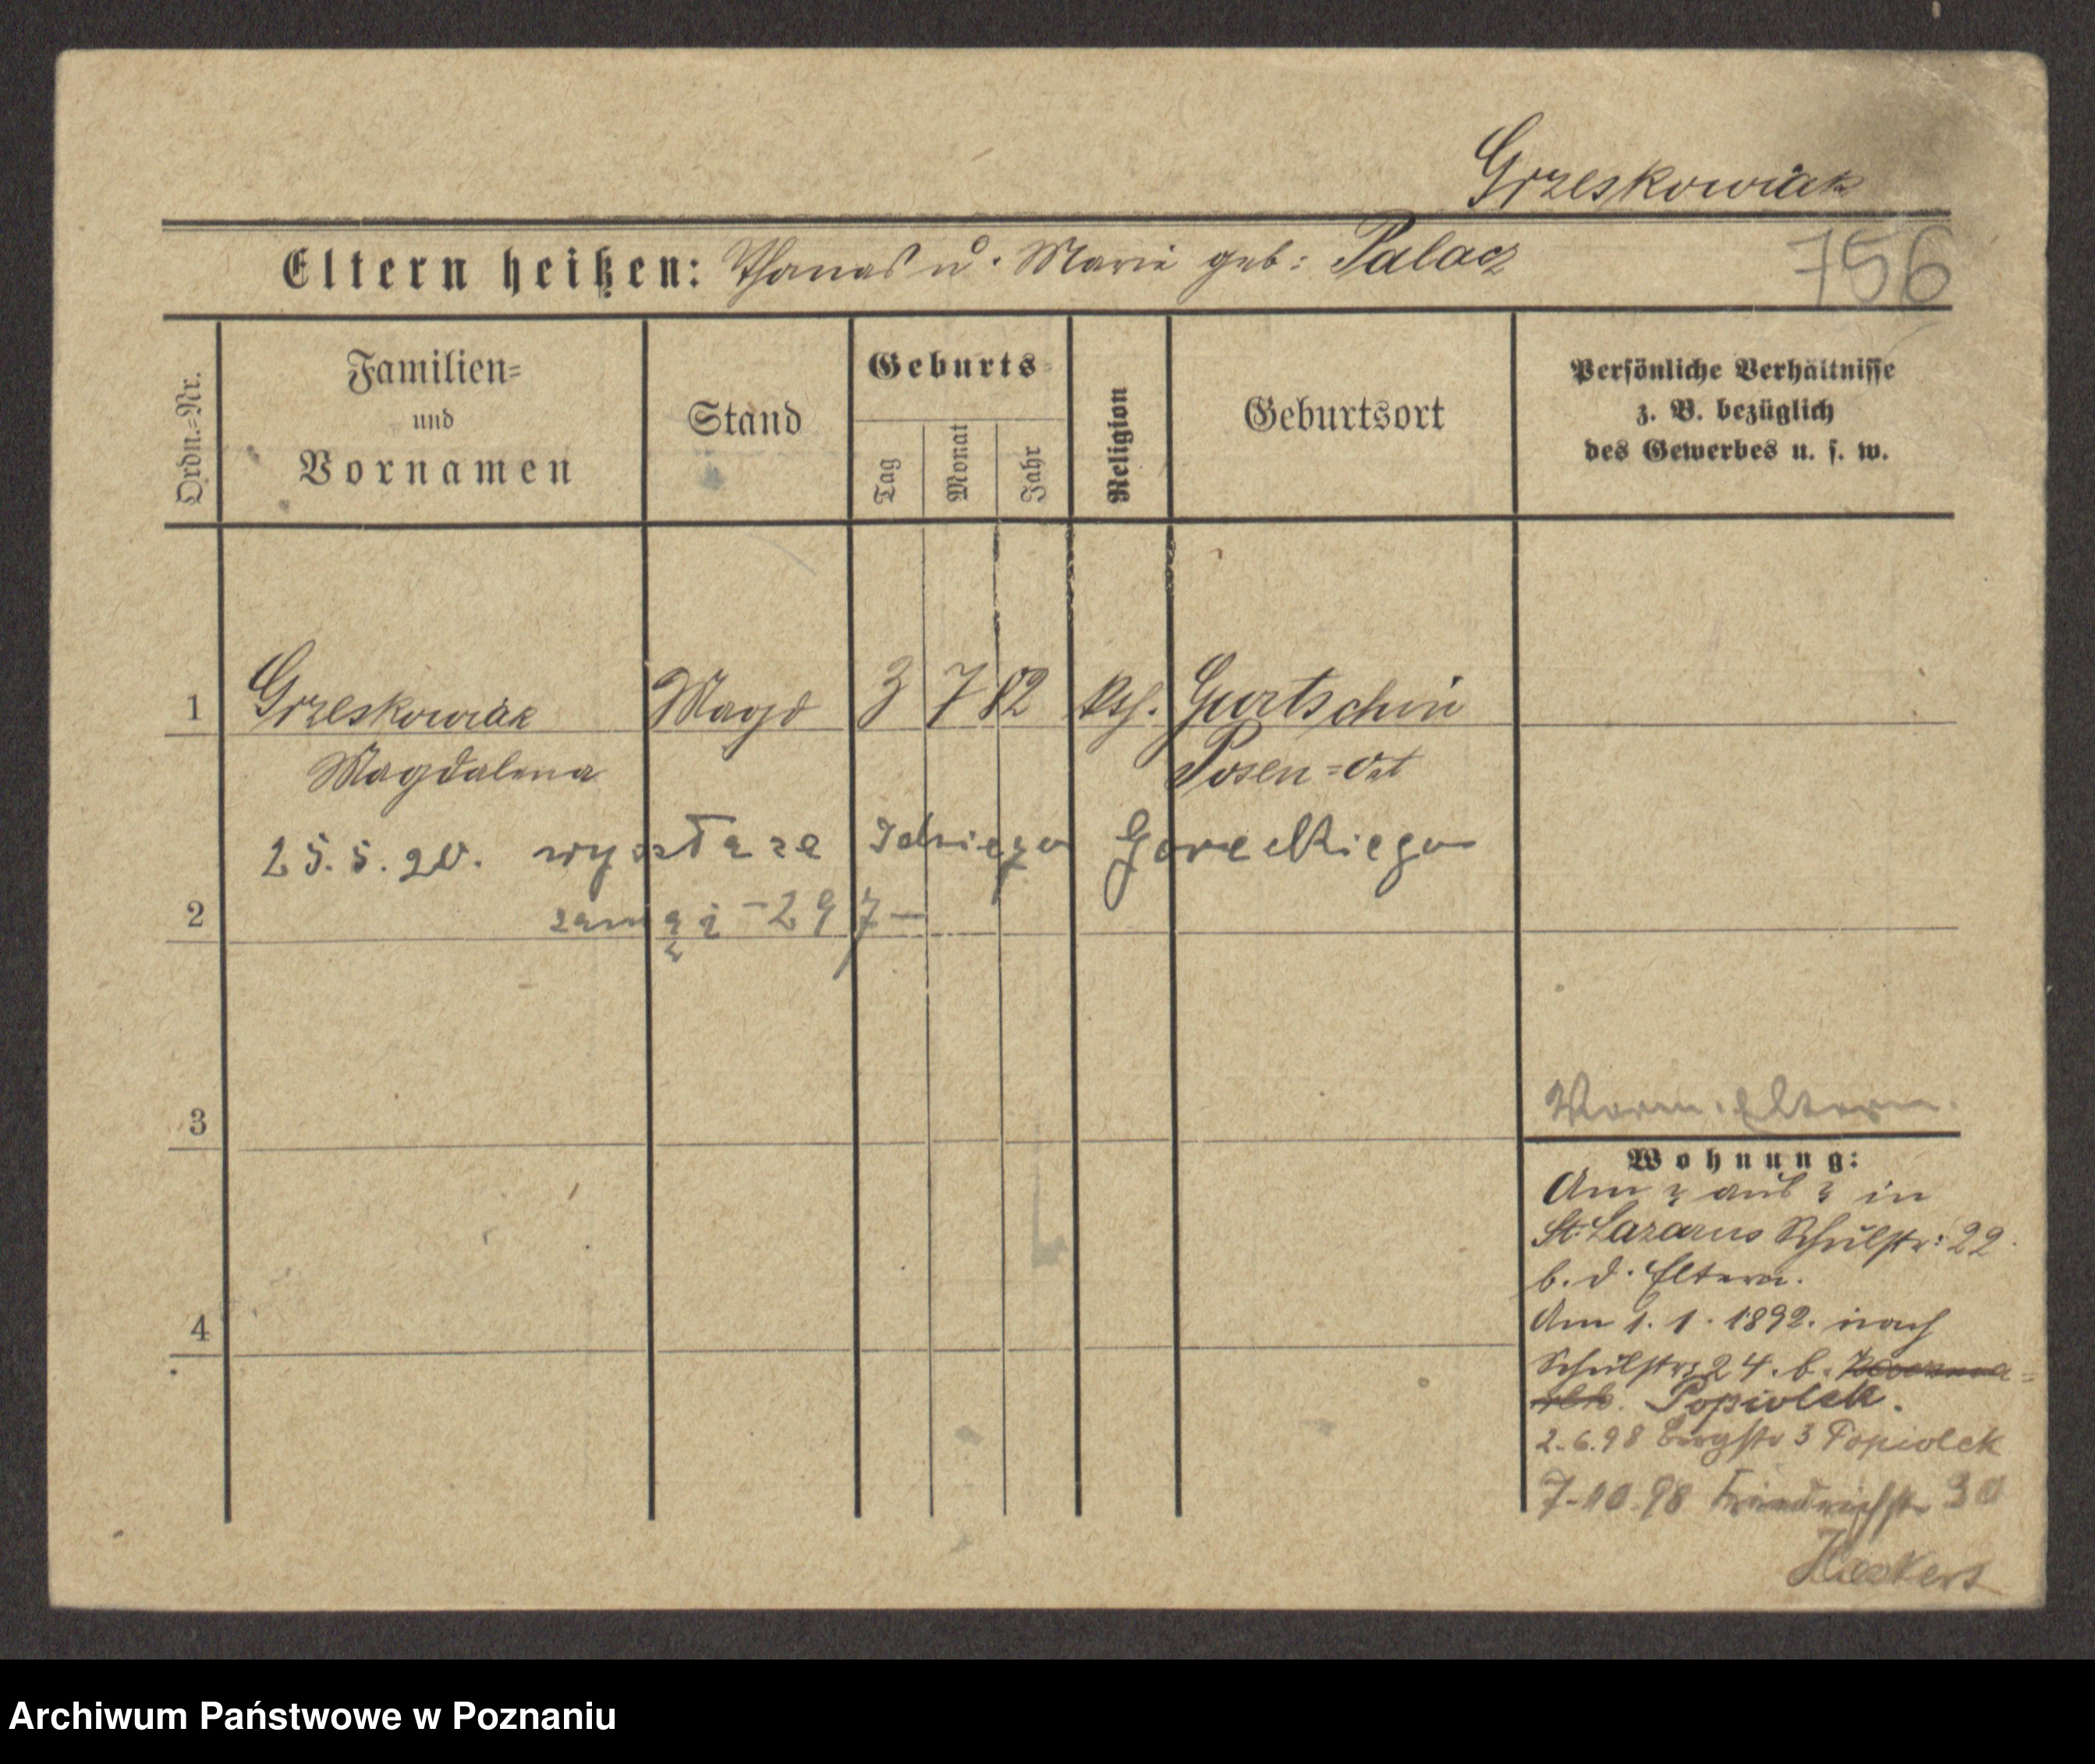 Grzeskowiak
Eltern heißen: Thomas u. Marie geb: Palacz
756
Ordn.=Nr.
Familien=
und
Vornamen
Stand
Geburts=
Tag
Monat
Jahr
Religion
Geburtsort
Persönliche Verhältnisse
z. B. bezüglich
des Gewerbes u. s. w.
1 Grzeskowiak Magd 3 7 82 kth. Gurtschin
Magdalena Posen=Ost
25.5.20. Goreckiego
2
297
3
Eltern.
Wohnung:
Am ? aus ? in
St. Lazarus Schulstr: 22
b. d. Eltern.
Am 1.1.1892. nach
4
Schulstr: 24. b.
Popiolek.
2.6.98 Bergstr 3 Popiolek
7-10.98 Friedrichstr 30
Archiwum Państwowe w Poznaniu